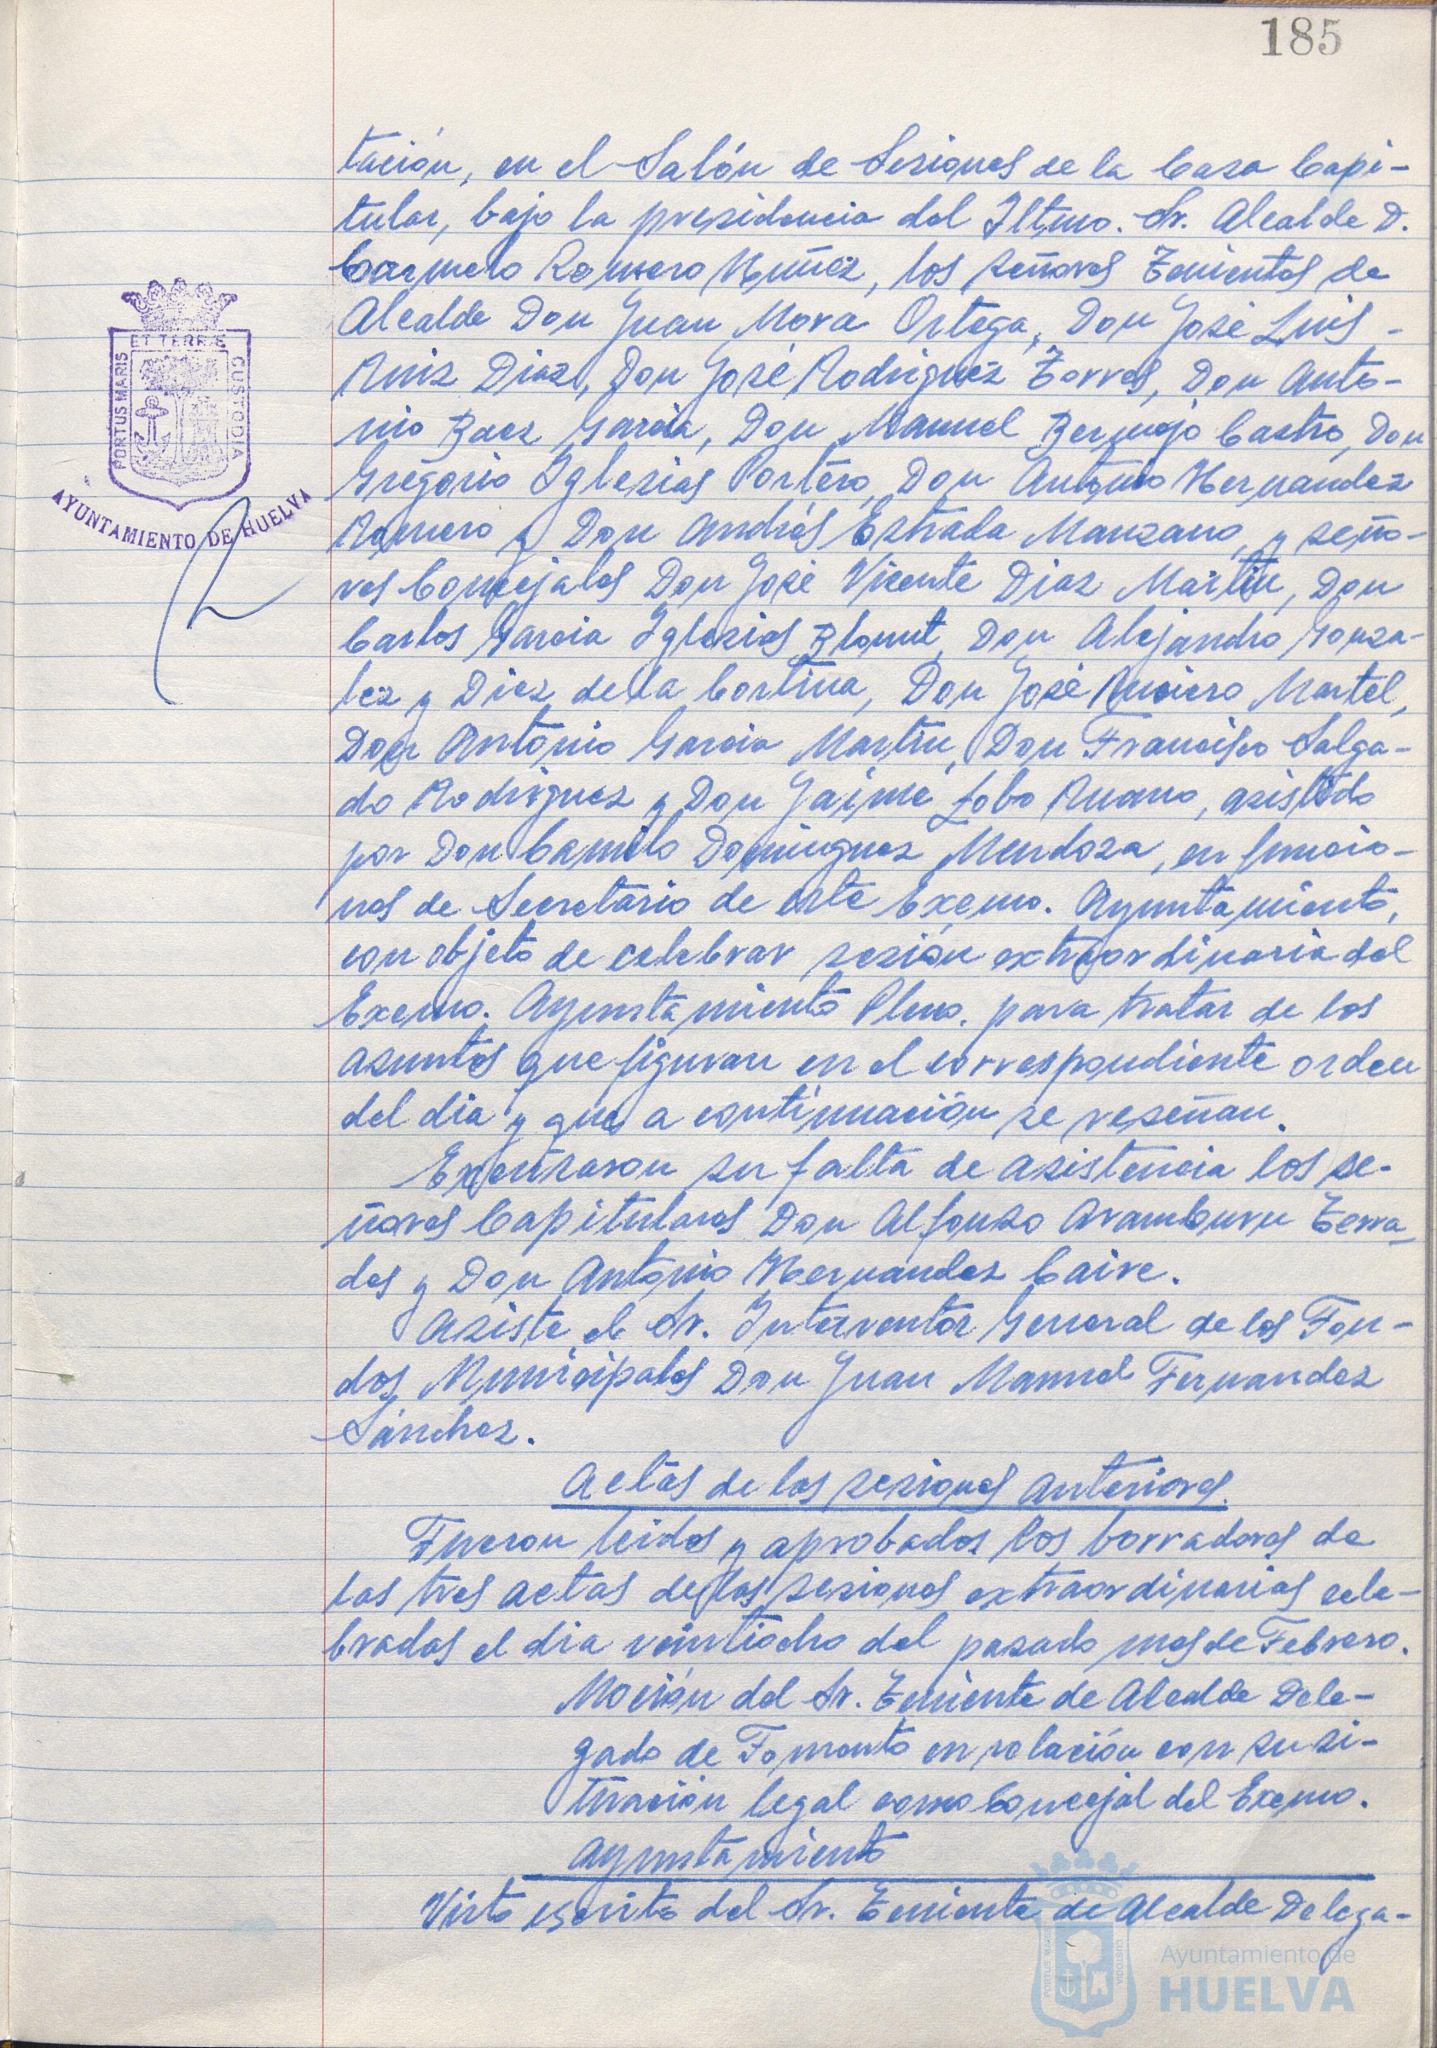 185
tación, en el Salón de Sesiones de la Casa Capi-
tular, bajo la presidencia del Iltmo. Sr. Alcalde D.
Carmelo Romero Núñez, los señores Tenientes de
Alcalde Don Juan Mora Ortega, Don José Luis
Ruiz Diaz, Don José Rodriguez Torres, Don Anto-
nio Baez Garcia, Don Manuel Bermejo Castro, Don
Gregorio Iglesias Portero, Don Antonio Hernandez
Romero y Don Andrés Estrada Manzano, y seño-
res Concejales Don José Vicente Diaz Martin, Don
Carlos Garcia Iglesias Blount, Don Alejandro Gonza-
lez y Diez de la Cortina, Don José Ruciero Martel,
Don Antonio Garcia Martin, Don Francisco Salga-
do Rodriguez y Don Jaime Lobo Ruano, asistido
por Don Camilo Dominguez Mendoza, en funcio-
nes de Secretario de este Excmo. Ayuntamiento,
con objeto de celebrar sesión extraordinaria del
Excmo. Ayuntamiento Pleno, para tratar de los
asuntos que figuran en el correspondiente orden
del dia y que a continuación se reseñan.
Excusaron su falta de asistencia los se-
ñores Capitulares Don Alfonso Aramburu Terra-
dos y Don Antonio Hernandez Caire.
Asiste el Sr. Interventor General de los Fon-
dos Municipales Don Juan Manuel Fernandez
Sánchez.
Actas de las sesiones anteriores.
Fueron leidos y aprobados los borradores de
las tres actas de las sesiones extraordinarias cele-
bradas el dia veintiocho del pasado mes de Febrero.
Moción del Sr. Teniente de Alcalde Dele-
gado de Fomento en relación con su si-
tuación legal como Concejal del Excmo.
Ayuntamiento
Visto escrito del Sr. Teniente de Alcalde Delega-
PORTUS MARIS
ET TERRÆ
CUSTODIA
AYUNTAMIENTO DE HUELVA
Ayuntamiento de
HUELVA